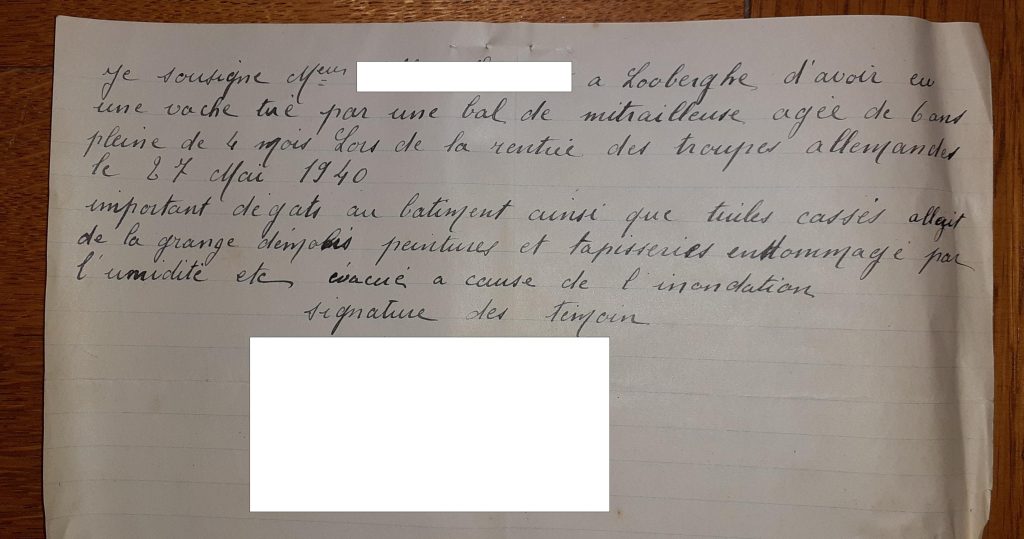 Je sousigne Meur a Looberghe d'avoir eu
une vache tué par une bal de mitrailleuse agée de 6 ans
pleine de 4 mois Lors de la rentrée des troupes allemandes
le 27 Mai 1940
important degats au batiment ainsi que tuiles cassés
de la grange démolis peintures et tapisseries endommagé par
l'umidité etc évacué a cause de l'inondation
signature des temoin